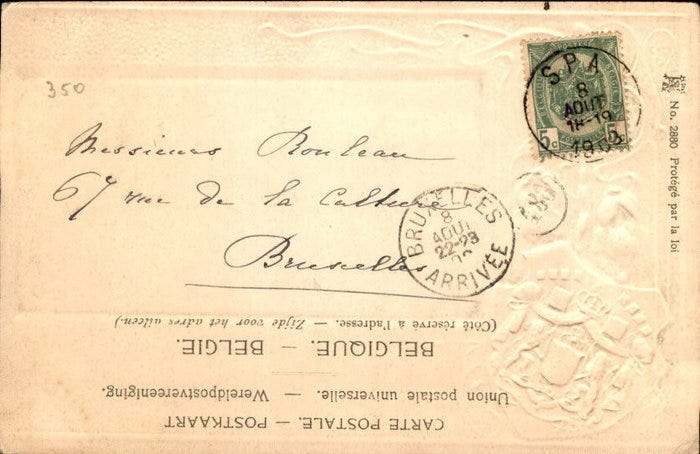 350
SPA
8
AOUT
18-19
1903
5c 5c
No. 2880 Protégé par la loi
Messieurs Rouleau
67 rue de la Culture
Bruxelles
BRUXELLES
8
AOUT
22-23
ARRIVÉE
(Côté réservé à l'adresse. — Zijde voor het adres alleen.)
BELGIQUE. — BELGIE.
Union postale universelle. — Wereldpostvereeniging.
CARTE POSTALE. — POSTKAART